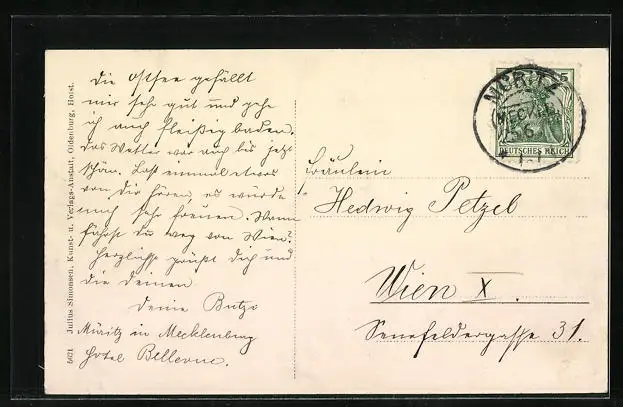 Die Ostsee gefällt
mir sehr gut und gehe
ich auch fleißig baden.
Das Wetter war auch bis jetzt
schön. Laß einmal etwas
von dir hören, es würde
mich sehr freuen. Wann
fährst du weg von Wien?
Herzlichst grüßt dich und
die deinen
Deine
Müritz in Mecklenburg
Hotel Bellevue.
5621 Julius Simonsen, Kunst- u. Verlags-Anstalt, Oldenburg, Holst.
MÜRITZ
(MECKLB)
5
DEUTSCHES REICH
Fräulein
Hedwig Petzel
Wien X.
Senefeldergasse 31.